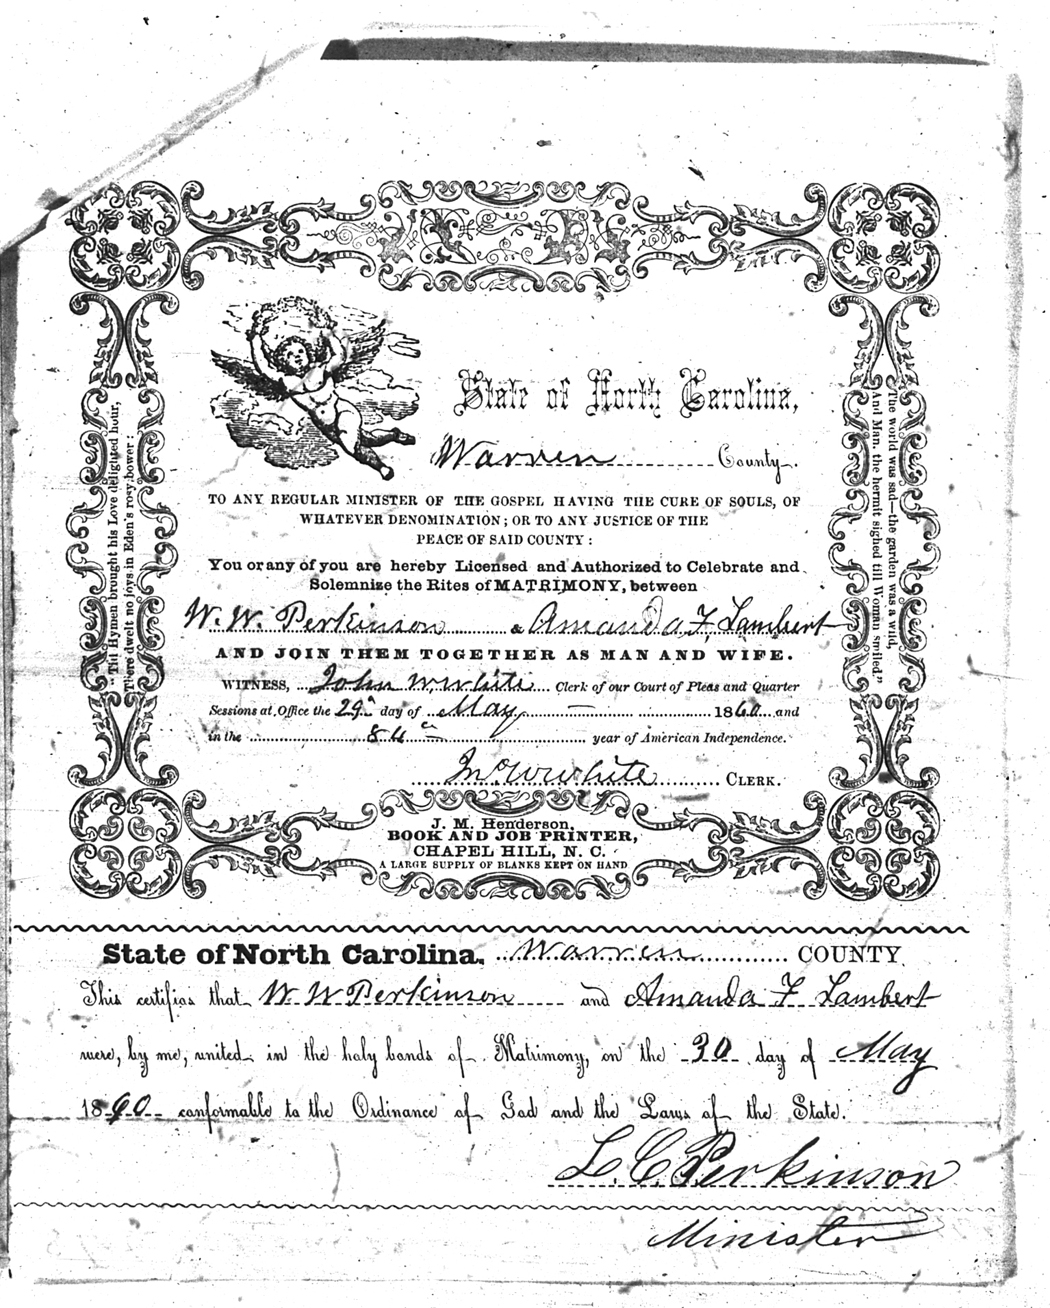 State of North Carolina,
Warren County.
TO ANY REGULAR MINISTER OF THE GOSPEL HAVING THE CURE OF SOULS, OF
WHATEVER DENOMINATION; OR TO ANY JUSTICE OF THE
PEACE OF SAID COUNTY:
You or any of you are hereby Licensed and Authorized to Celebrate and
Solemnize the Rites of MATRIMONY, between
W. W. Perkinson & Amanda F. Lambert
AND JOIN THEM TOGETHER AS MAN AND WIFE.
WITNESS, John W. White Clerk of our Court of Pleas and Quarter
Sessions at Office the 29th day of May 1860 and
in the 84th year of American Independence.
Jno W White CLERK.
"Till Hymen brought his Love delighted hour,
There dwelt no joys in Eden's rosy bower:
The world was sad—the garden was a wild,
And Man, the hermit sighed till Woman smiled"
J. M. Henderson,
BOOK AND JOB PRINTER,
CHAPEL HILL, N. C.
A LARGE SUPPLY OF BLANKS KEPT ON HAND
State of North Carolina, Warren COUNTY
This certifies that W W Perkinson and Amanda F Lambert
were, by me, united in the holy bonds of Matrimony, on the 30 day of May
1860 conformable to the Ordinance of God and the Laws of the State.
L. C. Perkinson
Minister